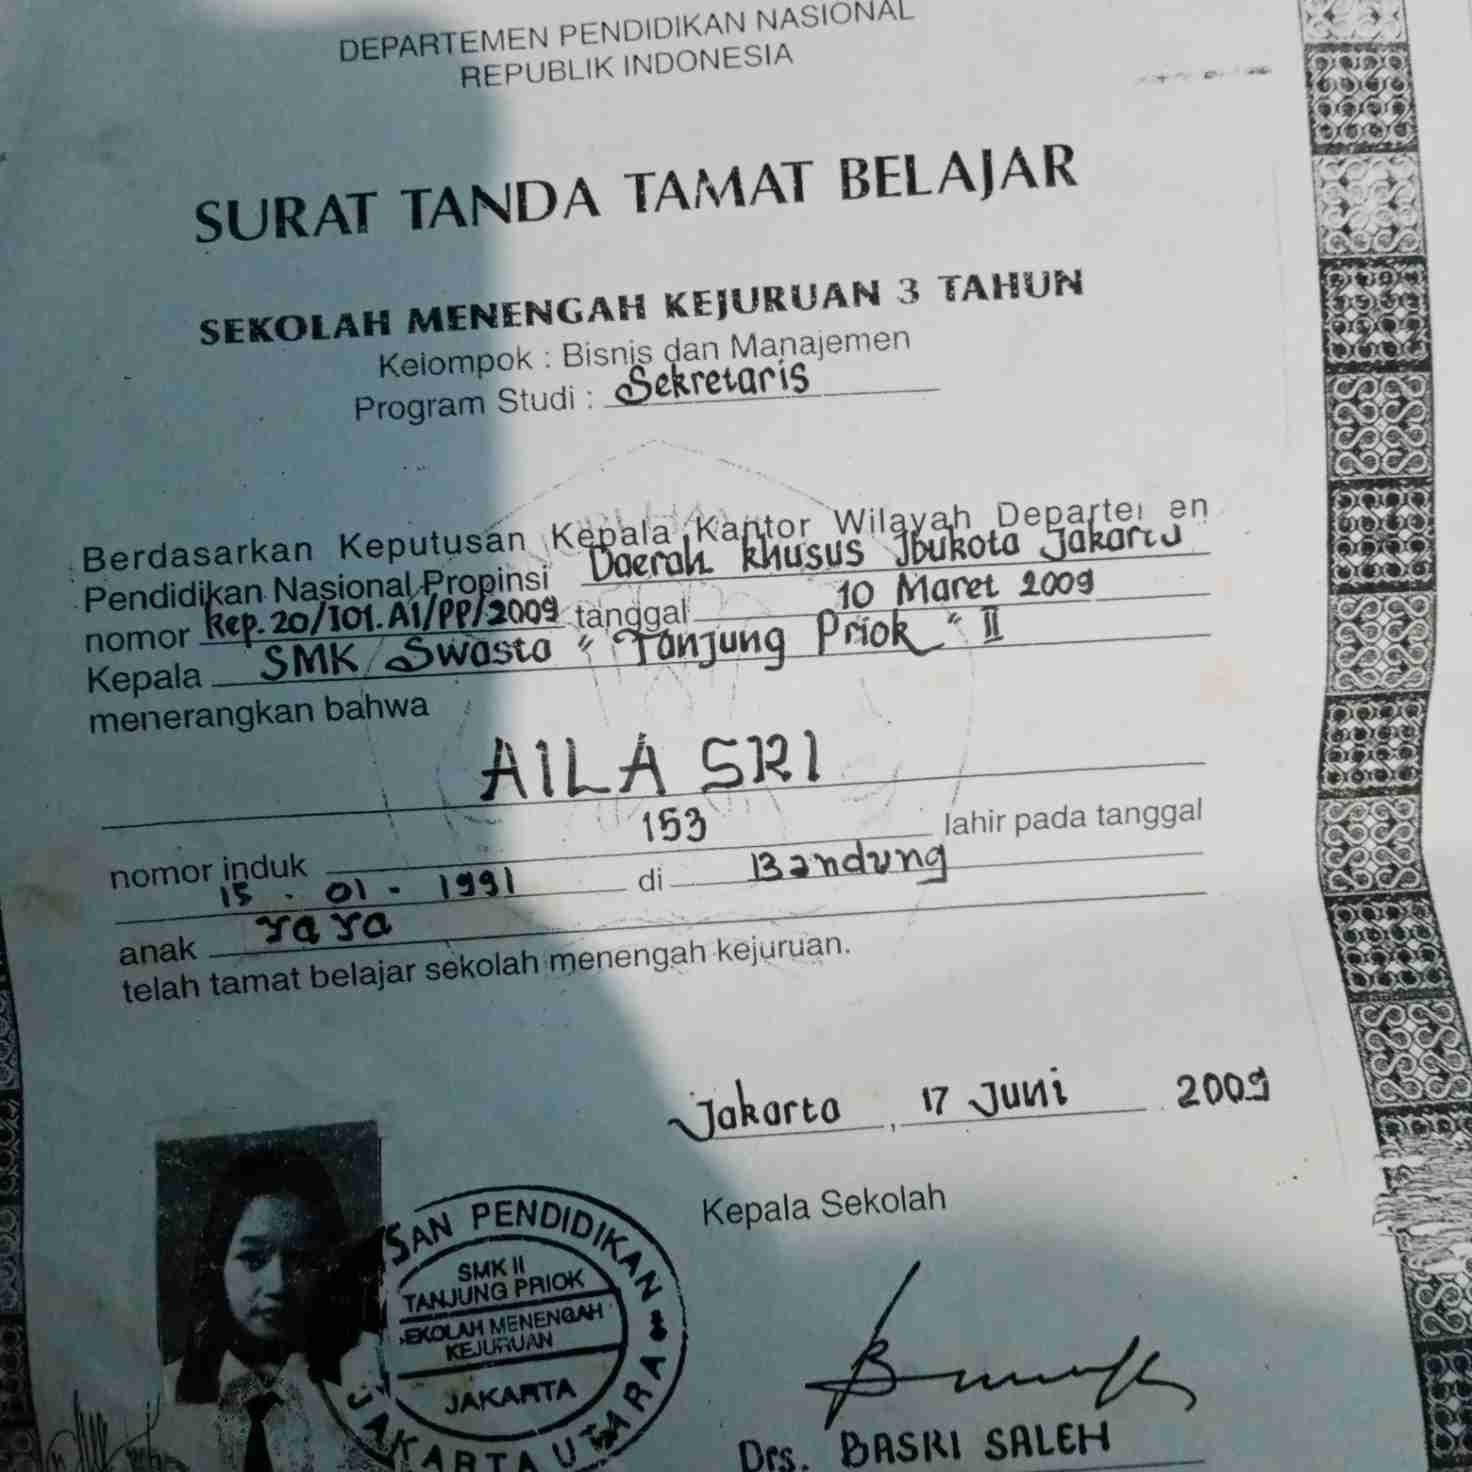 DEPARTEMEN PENDIDIKAN NASIONAL
REPUBLIK INDONESIA
SURAT TANDA TAMAT BELAJAR
SEKOLAH MENENGAH KEJURUAN 3 TAHUN
Kelompok : Bisnis dan Manajemen
Program Studi : Sekretaris
Berdasarkan Keputusan Kepala Kantor Wilayah Departe en
Pendidikan Nasional Propinsi Daerah Khusus Ibukota Jakarta
nomor Kep.20/101.A1/PP/2009 tanggal 10 Maret 2009
Kepala SMK Swasta "Tanjung Priok" II
menerangkan bahwa
AILA SRI
nomor induk 153 lahir pada tanggal
15 - 01 - 1991 di Bandung
anak
telah tamat belajar sekolah menengah kejuruan.
Jakarta, 17 Juni 2009
Kepala Sekolah
SAN PENDIDIKAN
SMK II
TANJUNG PRIOK
EKOLAH MENENGAH
KEJURUAN
JAKARTA
JAKARTA UTARA
Drs. BASRI SALEH